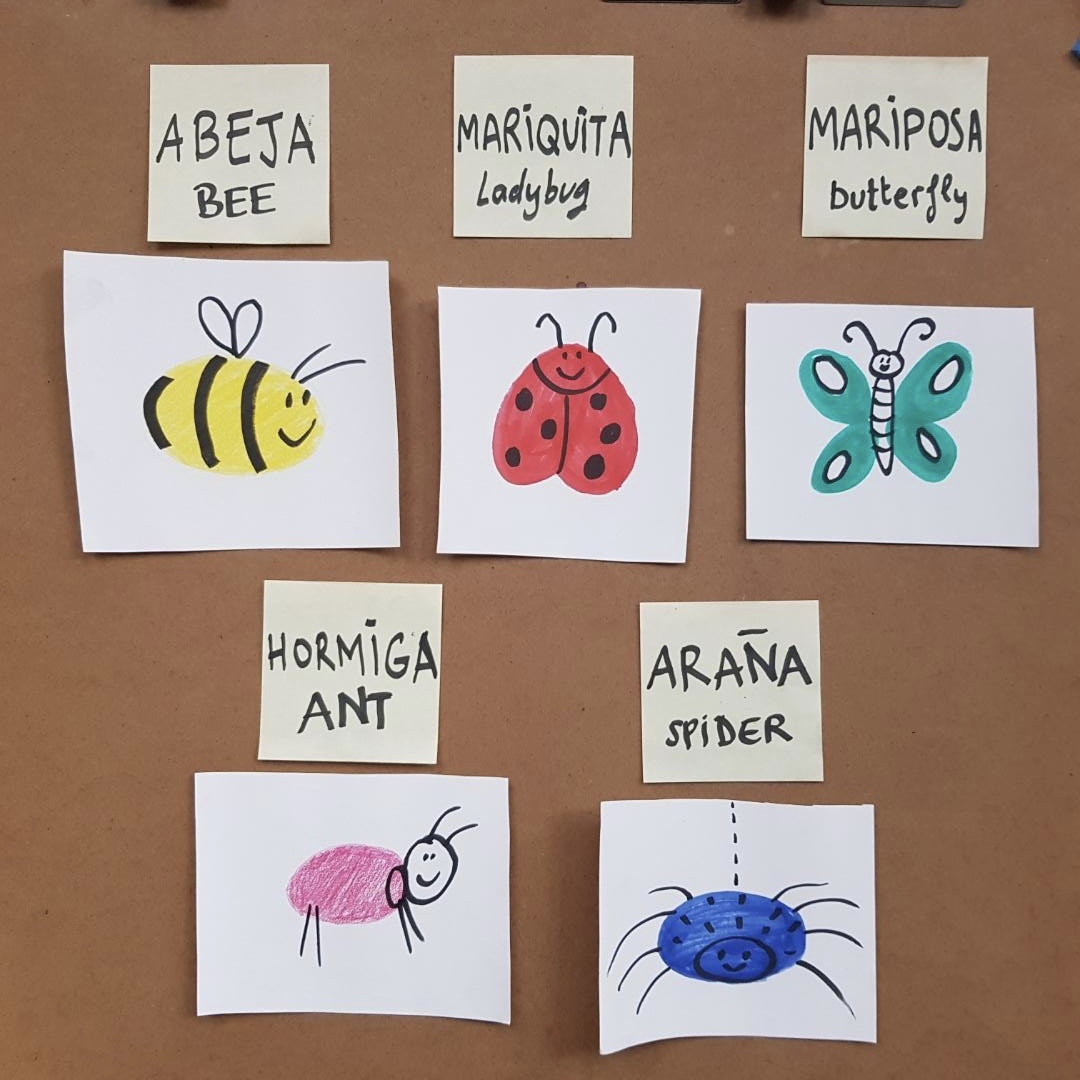 ABEJA
BEE
MARIQUITA
Ladybug
MARIPOSA
butterfly
HORMIGA
ANT
ARAÑA
SPIDER